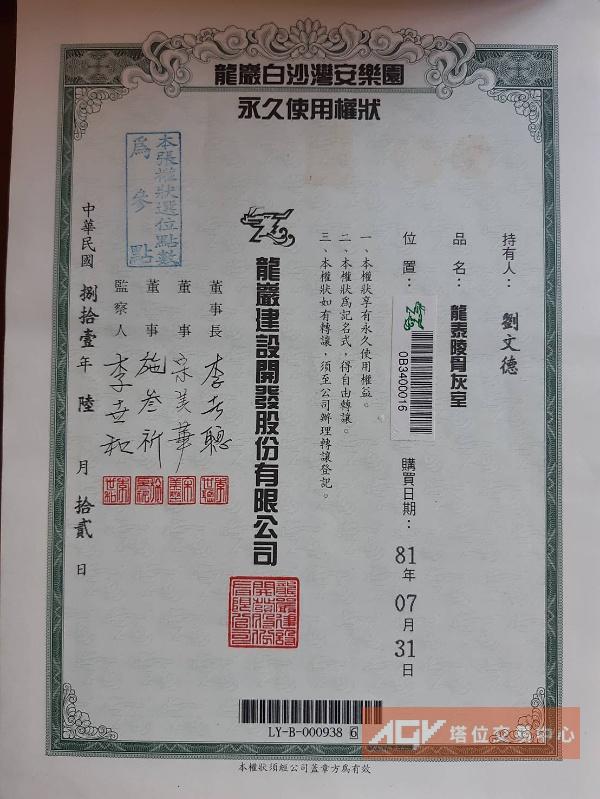 龍巖白沙灣安樂園
永久使用權狀
持有人：劉文德
品名：龍泰陵骨灰室
位置：
0B3400016
購買日期：81年07月31日
一、本權狀享有永久使用權益。
二、本權狀為記名式，得自由轉讓。
三、本權狀如有轉讓，須至公司辦理轉讓登記。
龍巖建設開發股份有限公司
董事長 李世聰
董事 宋美華
董事 施叁祈
監察人 李世和
本張權狀選位點數
為參點
中華民國捌拾壹年陸月拾貳日
LY-B-000938 6
本權狀須經公司蓋章方為有效
AGV 塔位交易中心